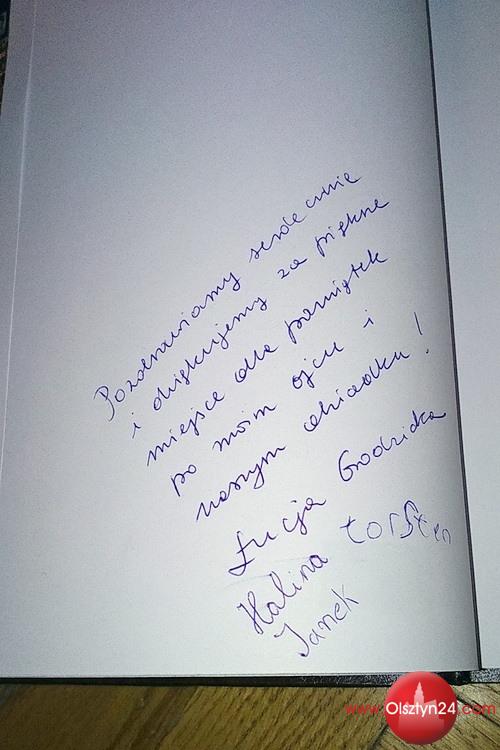 Pozdrawiamy serdecznie
i dziękujemy za piękne
miejsce dla pamiątek
po moim ojcu i
naszym dziadku!
Łucja Grodzicka
Halina Torsten
Janek
www.Olsztyn24.com